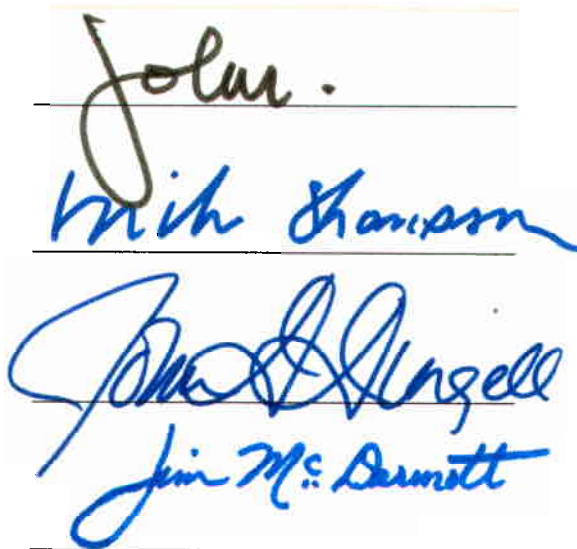 John.
Mike Thompson
John D Dingell
Jim McDermott